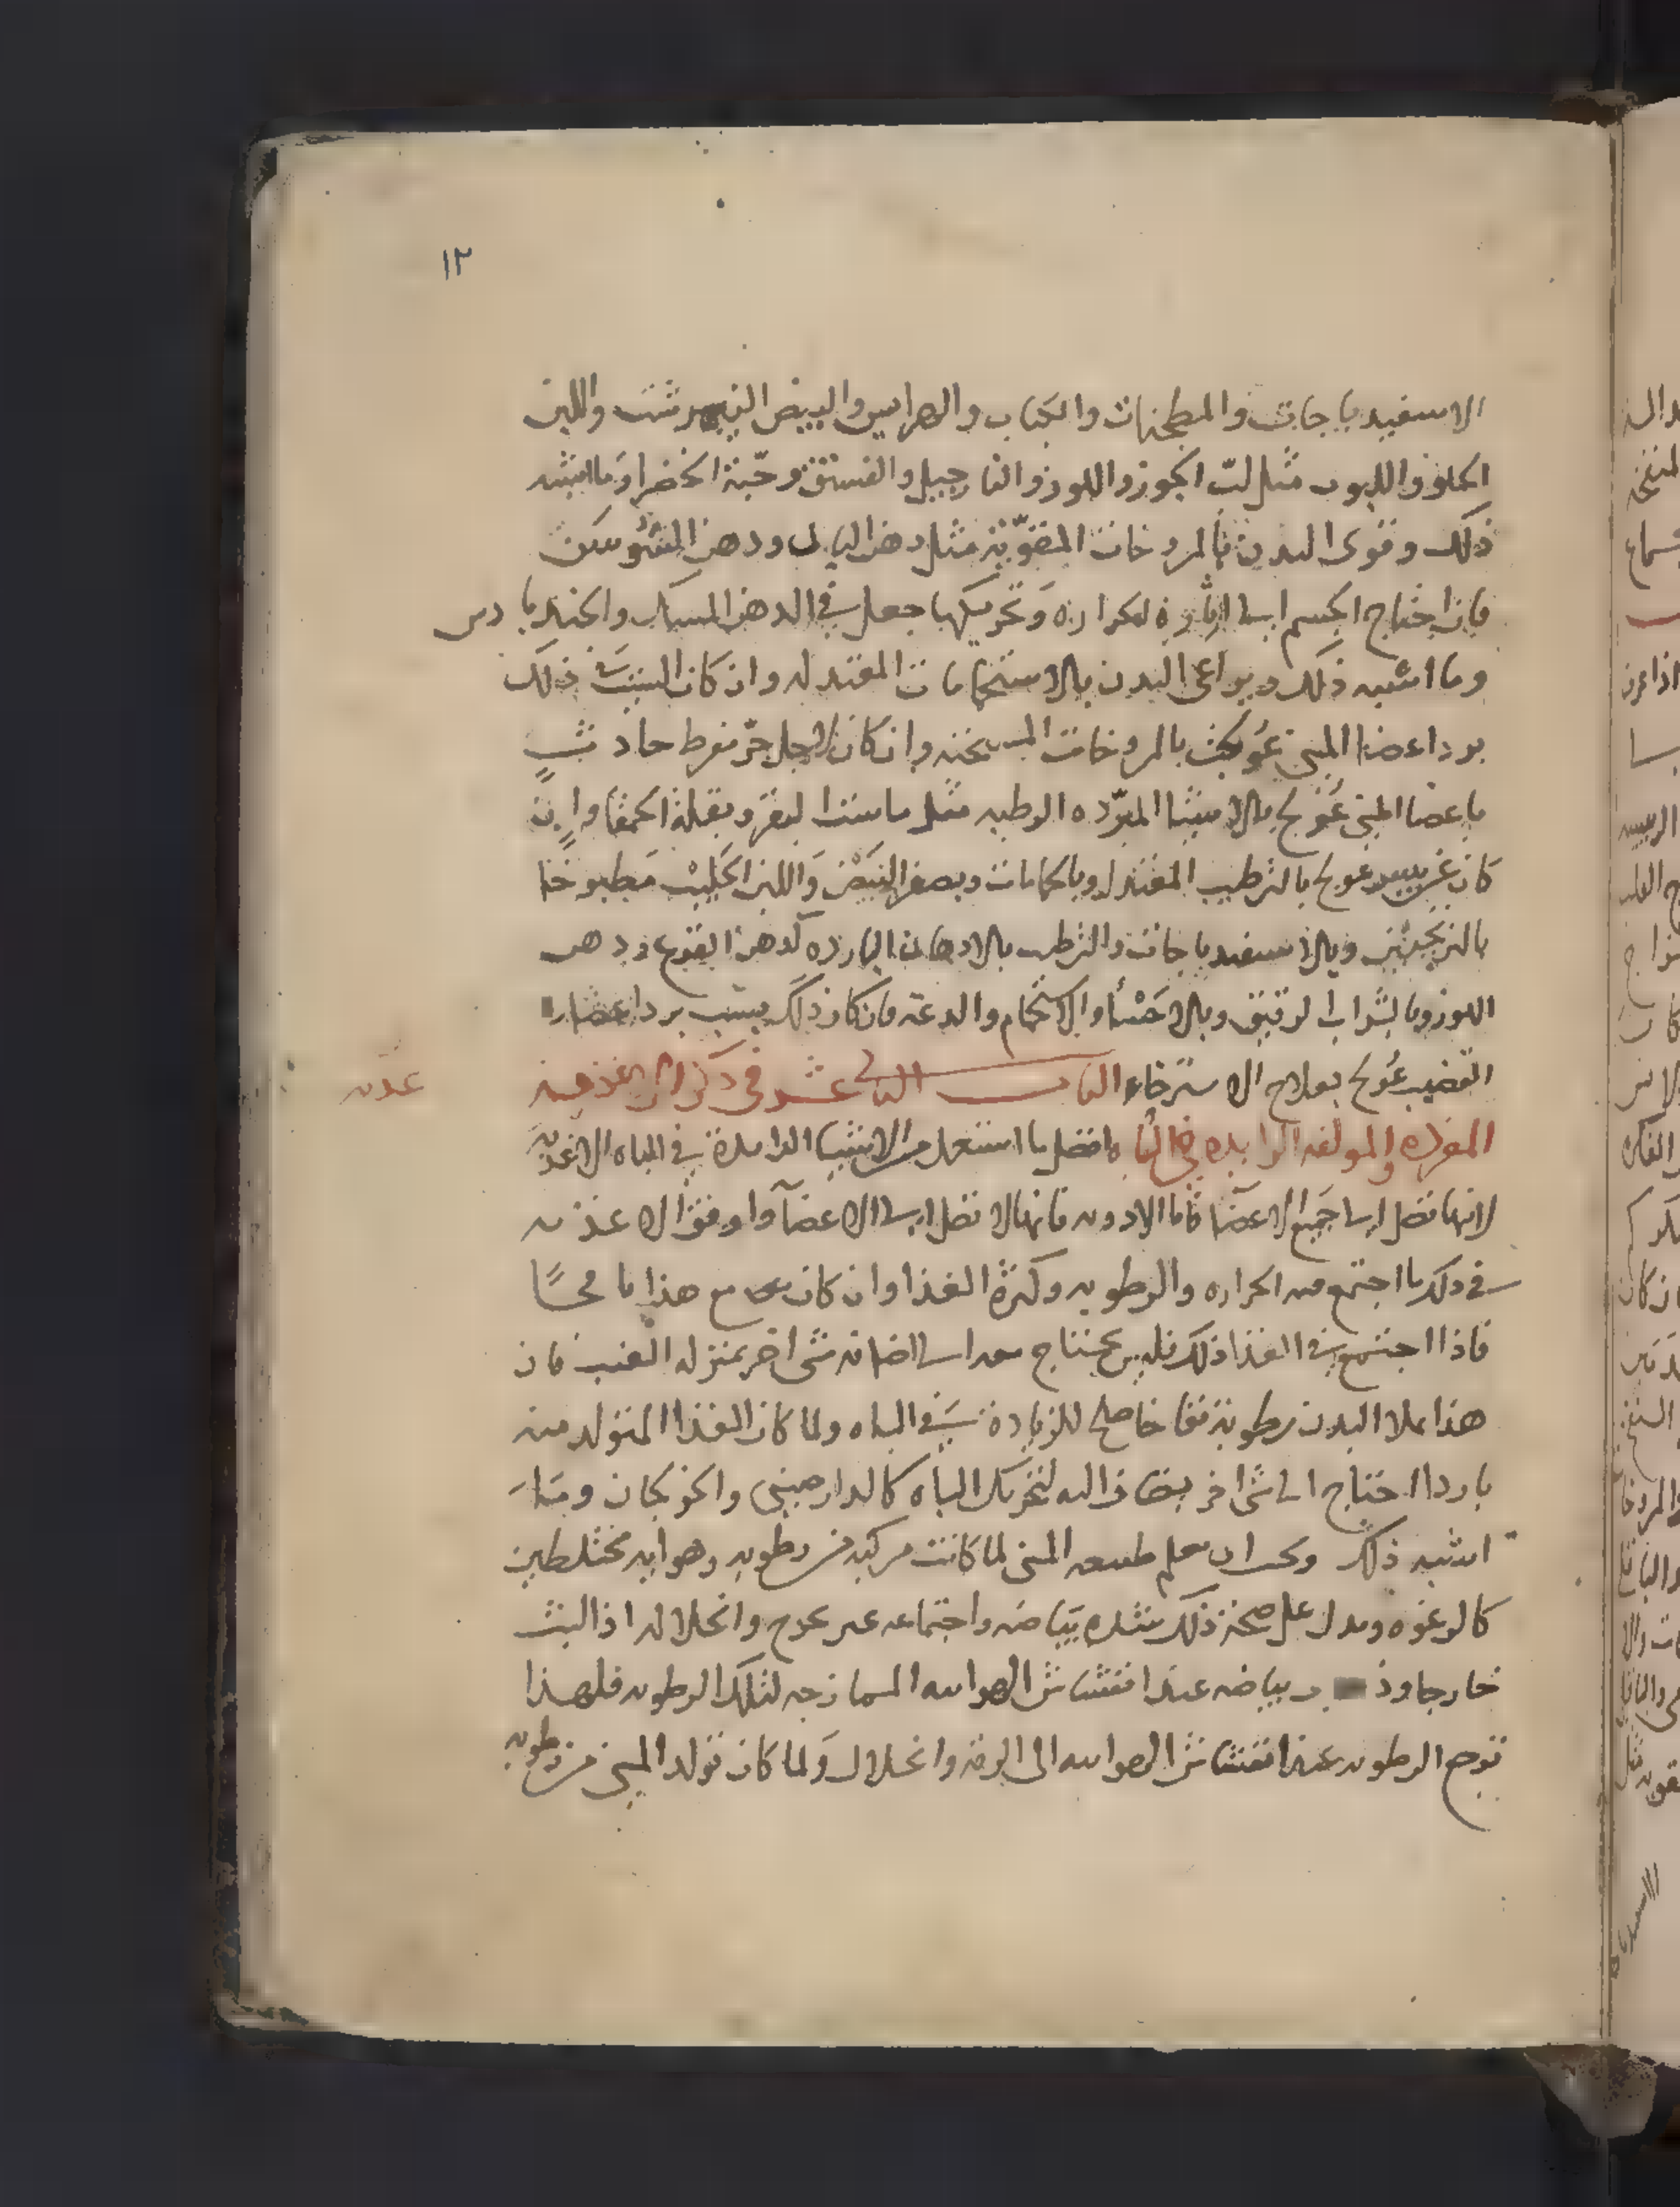 ١٢
الاسفيدباجات والمطجنات والكباب والهرايس والبيض النيمرشت واللبن
الحلو واللبوب مثل لبّ الجوز واللوز والنارجيل والفستق وحبّة الخضرا وما اشبه
ذلك وقوى البدن بالمروخات المقوّية مثل دهن البان ودهن السوسن
فان احتاج الجسم الى اثارة لحراره وتحريكها جعل في الدهن المسك والجندبادس
وما اشبه ذلك ويراعى البدن بالاستحمامات المعتدله وان كان السبب ذلك
برد اعضا المني عُولجت بالمروخات المسخنه وان كان لاجل حرّ مفرط حادث
باعضا المني عُولج بالاشيا المبرّده الرطبه مثل ماست البقر وبقلة الحمقا وان
كان عولج بالترطيب المعتدل وبالحمامات وبصفر البيض واللبن الحليب مطبوخا
بالترنجبين وبالاسفيدباجات والترطيب بالادهان البارده كدهن القرع ودهن
اللوز وبالشراب الرقيق وبالاحسا والاستحمام والدعه فان كان ذلك بسبب برد اعضا
القضيب عُولج بعلاج الاسترخاء الباب الثاني عشر في ذكر الاغذيه
المفرده والمولفه الزايده في الباه افضل ما استعمل من الاشيا الزايدة في الباه الاغذيه
لانها تصل الى جميع الاعضا فاما الادويه فانها لا تصل الى الاعضآ واوفق الاغذيه
في ذلك ما اجتمع فيه الحراره والرطوبه وكثرة الغذا وان كان مع هذا نافخًا
فاذا اجتمع في الغذا ذلك فليس يحتاج معه الى اضافة شى اخر بمنزله العنب فان
هذا يملا البدن رطوبة نفاخا صلح للزيادة في الباه ولما كان الغذا المتولد منه
باردا احتاج الى شى اخر يضاف اليه لتحريك الباه كالدارصيني والخولنجان وما
اشبه ذلك ويجب ان يعلم طبيعه المني لما كانت مركبه من رطوبه وهوايه مختلطين
كالرغوه ويدل على صحة ذلك شده بياضه واجتماعه وانحلاله اذا لبث
خارجا بياضه عند انفشاش الهوائيه الممازجه لتلك الرطوبه فلهذا
ترجع الرطوبه عند انفشاش الهوائيه الى الرقه وانحلال ولما كان تولد المني من رطوبه